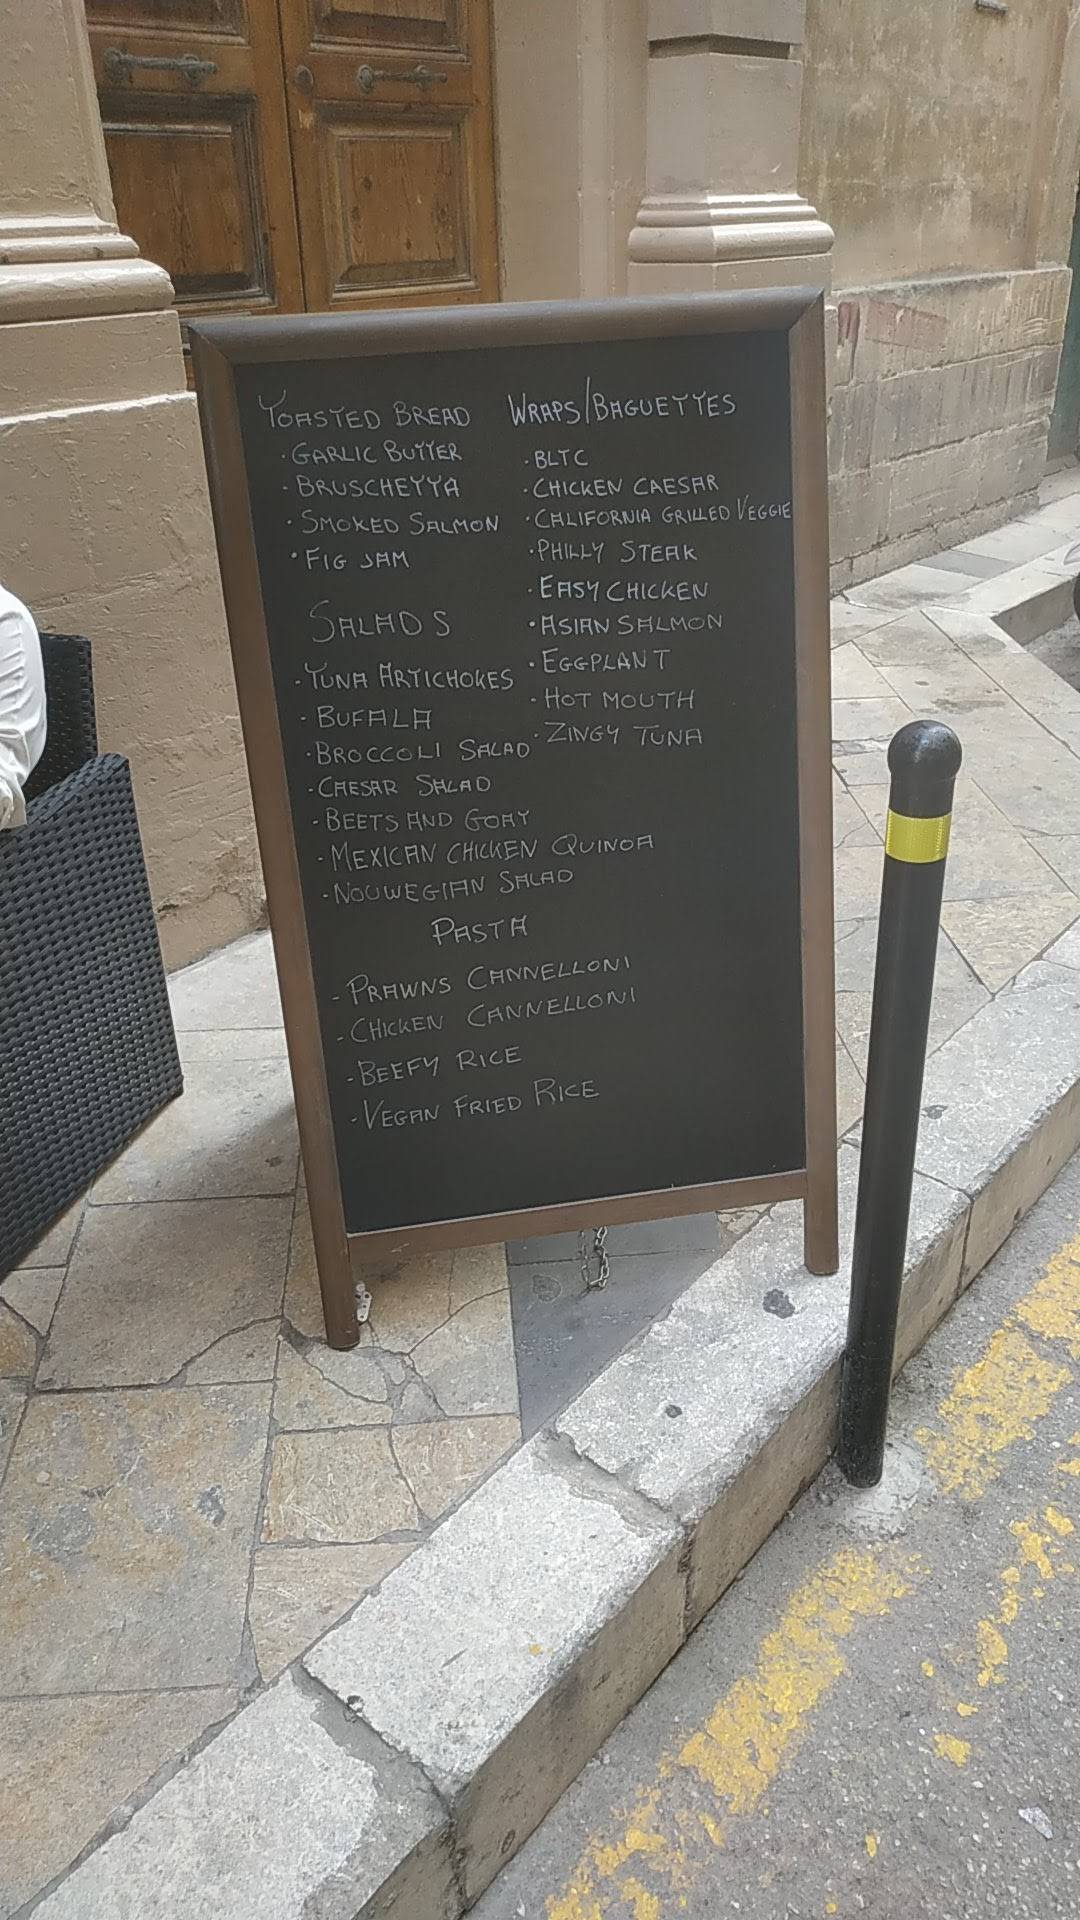 TOASTED BREAD
· GARLIC BUTTER
· BRUSCHETTA
· SMOKED SALMON
· FIG JAM
SALADS
· TUNA ARTICHOKES
· BUFALA
· BROCCOLI SALAD
· CAESAR SALAD
· BEETS AND GOAT
· MEXICAN CHICKEN QUINOA
· NOUWEGIAN SALAD
WRAPS/BAGUETTES
· BLTC
· CHICKEN CAESAR
· CALIFORNIA GRILLED VEGGIE
· PHILLY STEAK
· EASY CHICKEN
· ASIAN SALMON
· EGGPLANT
· HOT MOUTH
· ZINGY TUNA
PASTA
- PRAWNS CANNELLONI
- CHICKEN CANNELLONI
- BEEFY RICE
- VEGAN FRIED RICE